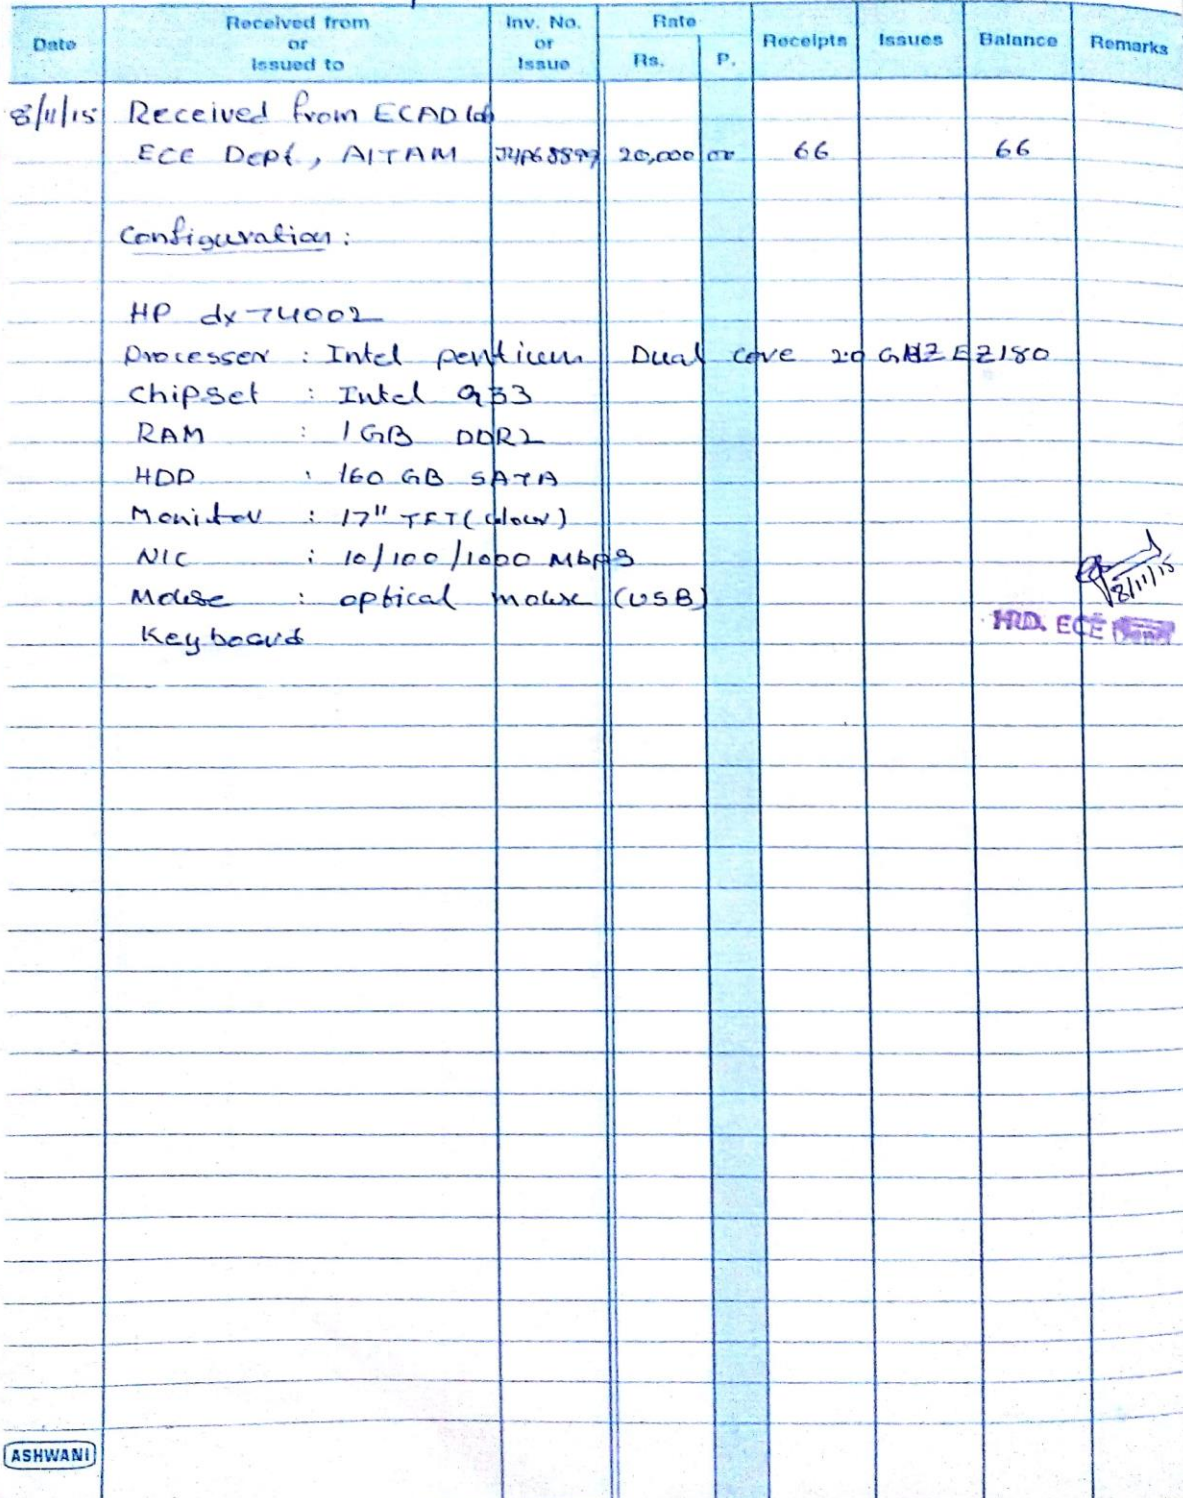 Date Received from or Issued to Inv. No. or Issue Rate Rs. P. Receipts Issues Balance Remarks
8/11/15 Received from ECAD lab
ECE Dept, AITAM 20,000 00 66 66
Configuration:
HP dx 7400
Processer : Intel pentium Dual core 2.0 GHZ E2180
Chipset : Intel Q33
RAM : 1GB DDR2
HDD : 160 GB SATA
Monitor : 17" TFT (colour)
NIC : 10/100/1000 Mbps
Mouse : optical mouse (USB)
Keyboard
8/11/15
ECE
ASHWANI